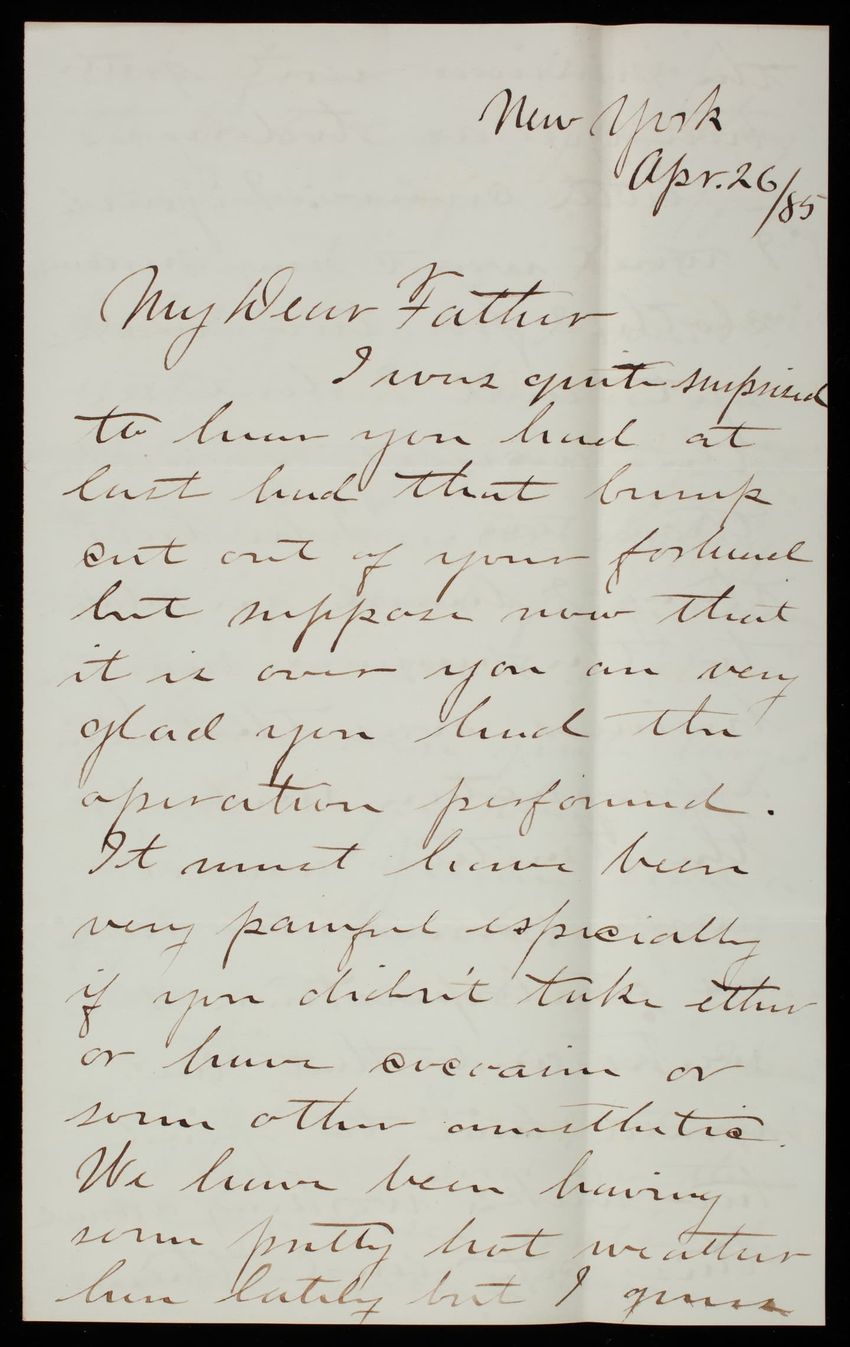 New York
Apr. 26/85
My Dear Father
I was quite surprised
to hear you had at
last had that bump
cut out of your forhead
but suppose now that
it is over you are very
glad you had the
operation performed.
It must have been
very painful especially
if you didn't take ether
or have cocoaine or
some other anesthetic.
We have been having
some pretty hot weather
here lately but I guess